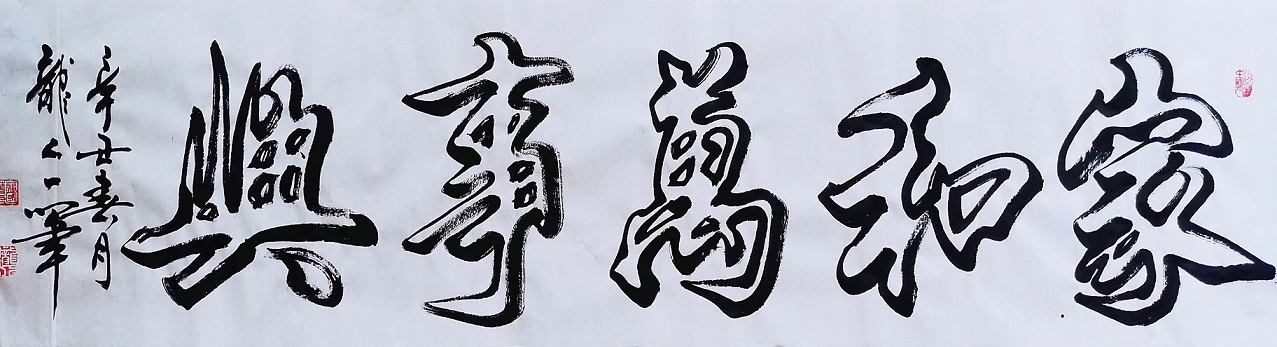 家和萬事興
辛丑春月
龍人一筆